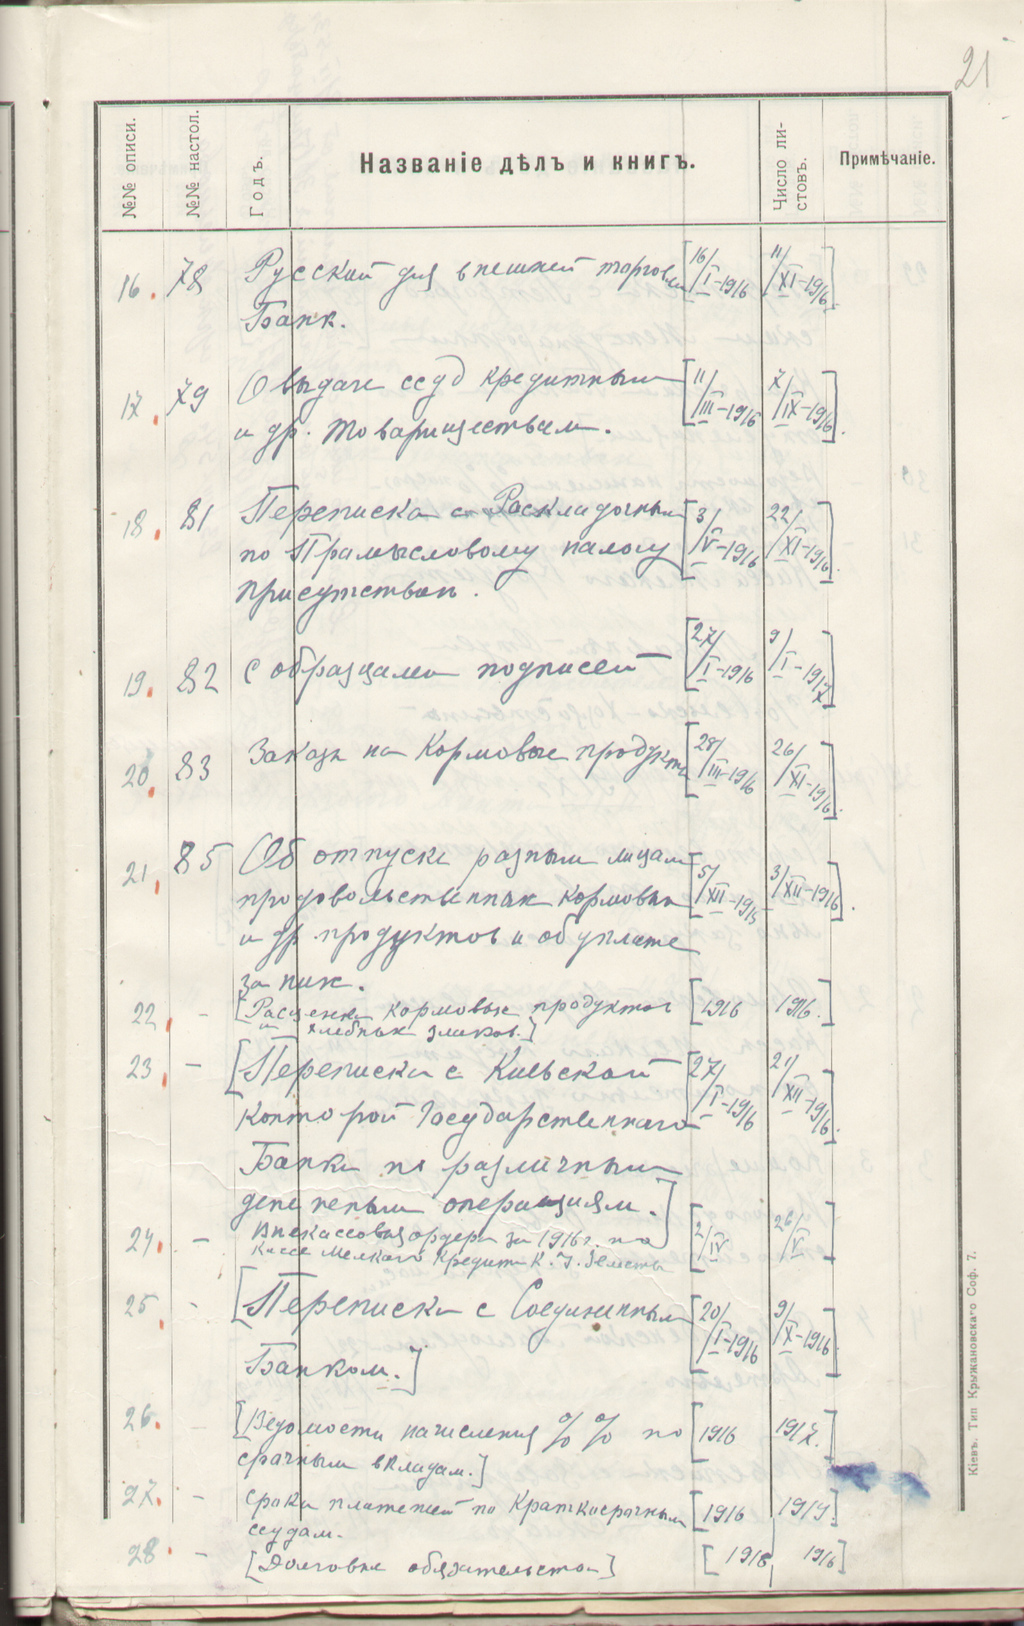 21
№№ описи. №№ настол. Годъ. Названіе дѣлъ и книгъ. Число ли-стовъ. Примѣчаніе.
16. 78 Русский для внешней торговли [16/I-1916 11/XI-1916].
Банк.
17. 79 О выдаче ссуд кредитным [11/III-1916 7/IX-1916].
и др. товариществам.
18. 81 Переписка с Раскладочным [3/V-1916 22/XI-1916].
по Промысловому налогу
присутствием.
19. 82 С образцами подписей [27/I-1916 9/I-1917]
20. 83 Заказы на Кормовые продукты [28/III-1916 26/XI-1916].
21. 85 Об отпуске разным лицам [5/XII-1915 3/XII-1916].
продовольственных кормовых
и др. продуктов и об уплате
за них.
22. - [Расценки кормовых продуктов [1916 1916.]
и хлебных злаков.]
23. - [Переписка с Киевской [27/I-1916 21/XII-1916].
конторой Государственного
Банка по различным
денежным операциям.]
24. - Внекассовые ордера за 1916 г. по [2/IV 26/V]
кассе Мелкого Кредита К. У. Земства
25. - [Переписка с Соединенным [20/I-1916 9/X-1916].
Банком.]
26. [Ведомости начисления %% по [1916 1917.]
срочным вкладам.]
27. - Сроки платежей по Краткосрочным [1916 1919.]
ссудам.
28. - [Долговые обязательства] [1916 1916]
Кіевъ. Тип Крыжановскаго Соф. 7.